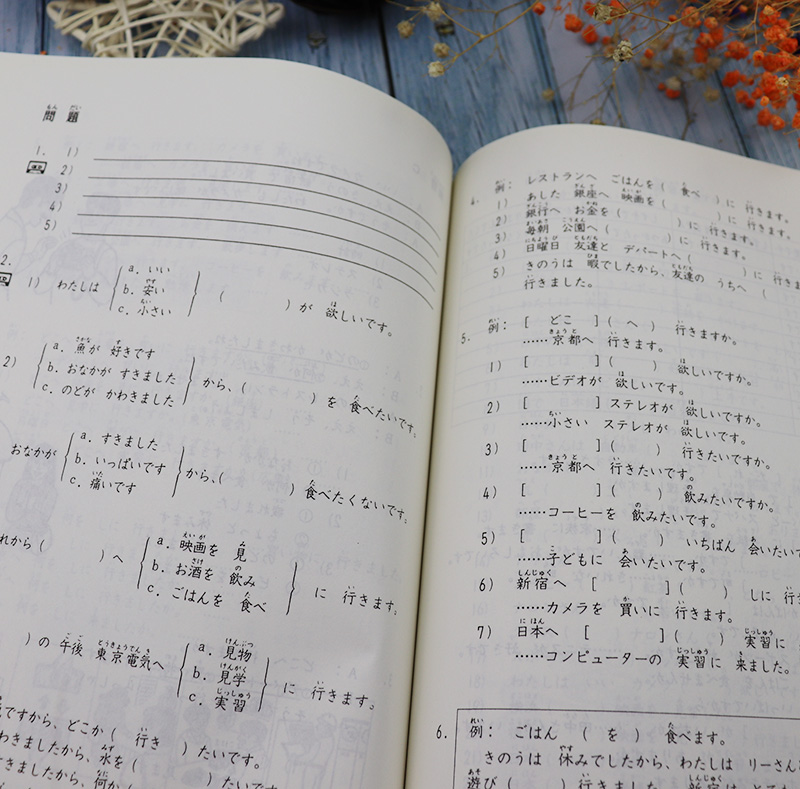 問題
1. 1)
2)
3)
4)
5)
2.
1) わたしは { a. いい
b. 安い
c. 小さい } ( )が 欲しいです。
2) { a. 魚が 好きです
b. おなかが すきました
c. のどが かわきました } から、( )を 食べたいです。
おなかが { a. すきました
b. いっぱいです
c. 痛いです } から、( ) 食べたくないです。
れから( )へ { a. 映画を 見
b. お酒を 飲み
c. ごはんを 食べ } に 行きます。
)の 午後 東京電気へ { a. 見物
b. 見学
c. 実習 } に 行きます。
ですから、どこか( 行き )たいです。
わきましたから、水を( )たいです。
きましたから、何か( )たいです
4. 例: レストランへ ごはんを( 食べ )に 行きます。
1) あした 銀座へ 映画を( )に 行きます。
2) 銀行へ お金を( )に 行きます。
3) 毎朝 公園へ( )に 行きます。
4) 日曜日 友達と デパートへ( )に 行きます
5) きのうは 暇でしたから、友達の うちへ(
行きました。
5. 例: [ どこ ]( へ ) 行きますか。
……京都へ 行きます。
1) [ ]( ) 欲しいですか。
……ビデオが 欲しいです。
2) [ ] ステレオが 欲しいですか。
……小さい ステレオが 欲しいです。
3) [ ]( ) 行きたいですか。
……京都へ 行きたいです。
4) [ ]( ) 飲みたいですか。
……コーヒーを 飲みたいです。
5) [ ]( ) いちばん 会いたいで
……子どもに 会いたいです。
6) 新宿へ [ ]( ) しに 行き
……カメラを 買いに 行きます。
7) 日本へ [ ]( ) 実習に
……コンピューターの 実習に 来ました。
6. 例: ごはん ( を ) 食べます。
きのうは 休みでしたから、わたしは リーさん
遊び( ) 行きました